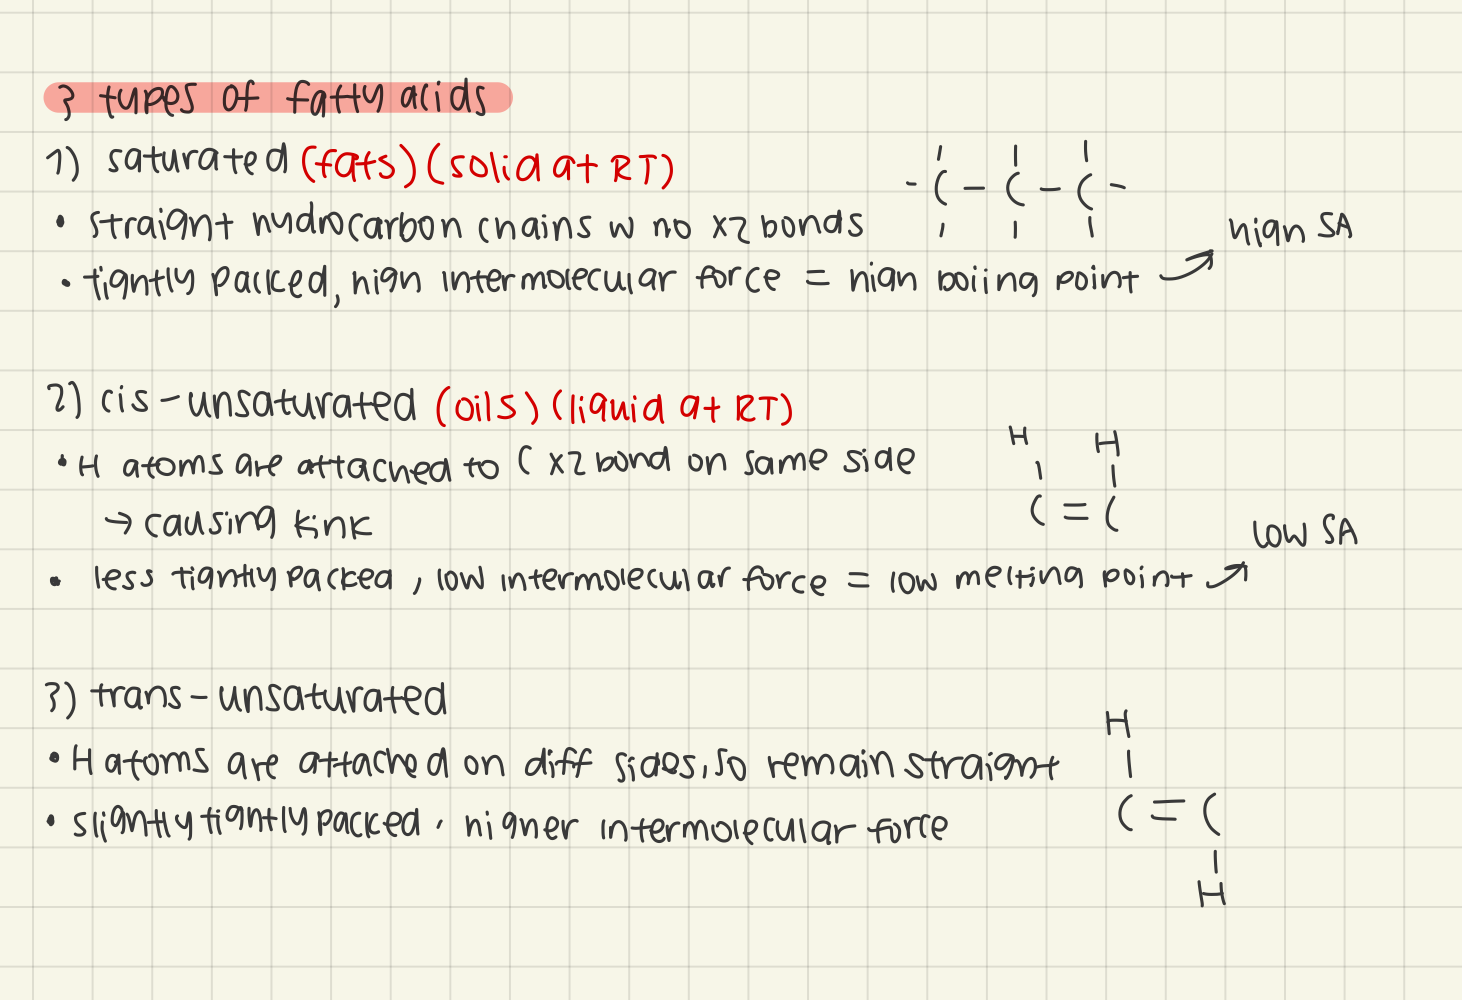 3 types of fatty acids
1) saturated (fats) (solid at RT)
• straight hydrocarbon chains w no x2 bonds
• tightly packed, high intermolecular force = high boiing point → high SA
- C - C - C -
2) cis-unsaturated (oils) (liquid at RT)
• H atoms are attached to C x2 bond on same side
→ causing kink
H H
C = C
• less tightly packed, low intermolecular force = low melting point → low SA
3) trans-unsaturated
• H atoms are attached on diff sides, so remain straight
• slightly tightly packed, higher intermolecular force
H
C = C
H